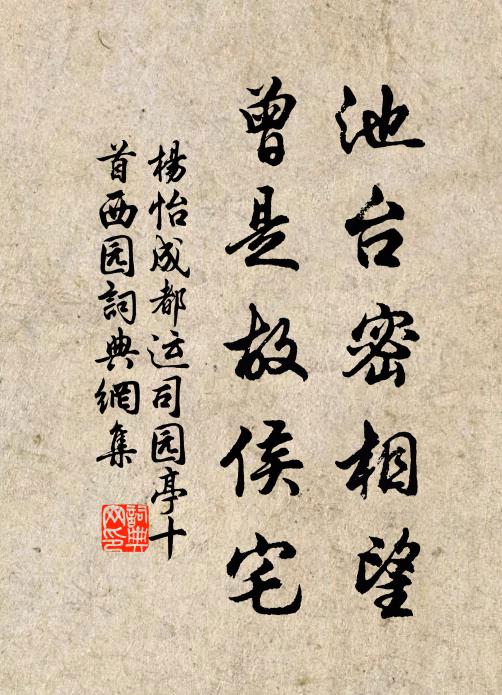 池台密相望
曾是故侯宅
楊怡成都运司园亭十
首西园詞典網集
詞典网印